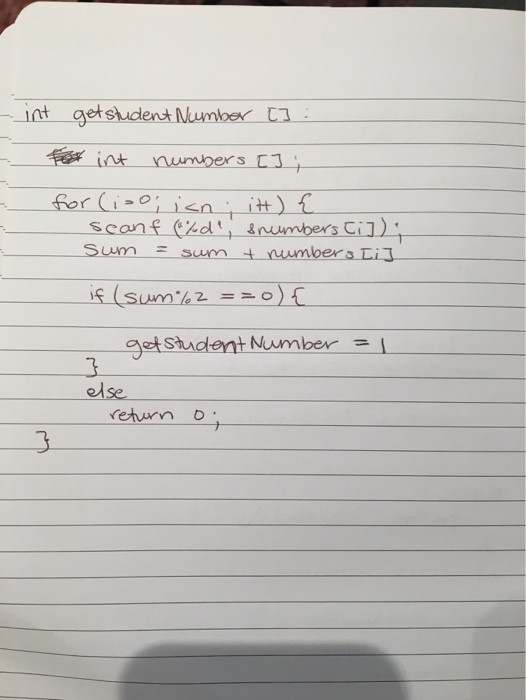 int getstudentNumber [] :
int numbers [] ;
for (i=0; i<n ; i++) {
scanf ("%d", &numbers [i]) ;
sum = sum + numbers [i]
if (sum%2 ==0) {
getStudentNumber = 1
}
else
return 0;
}